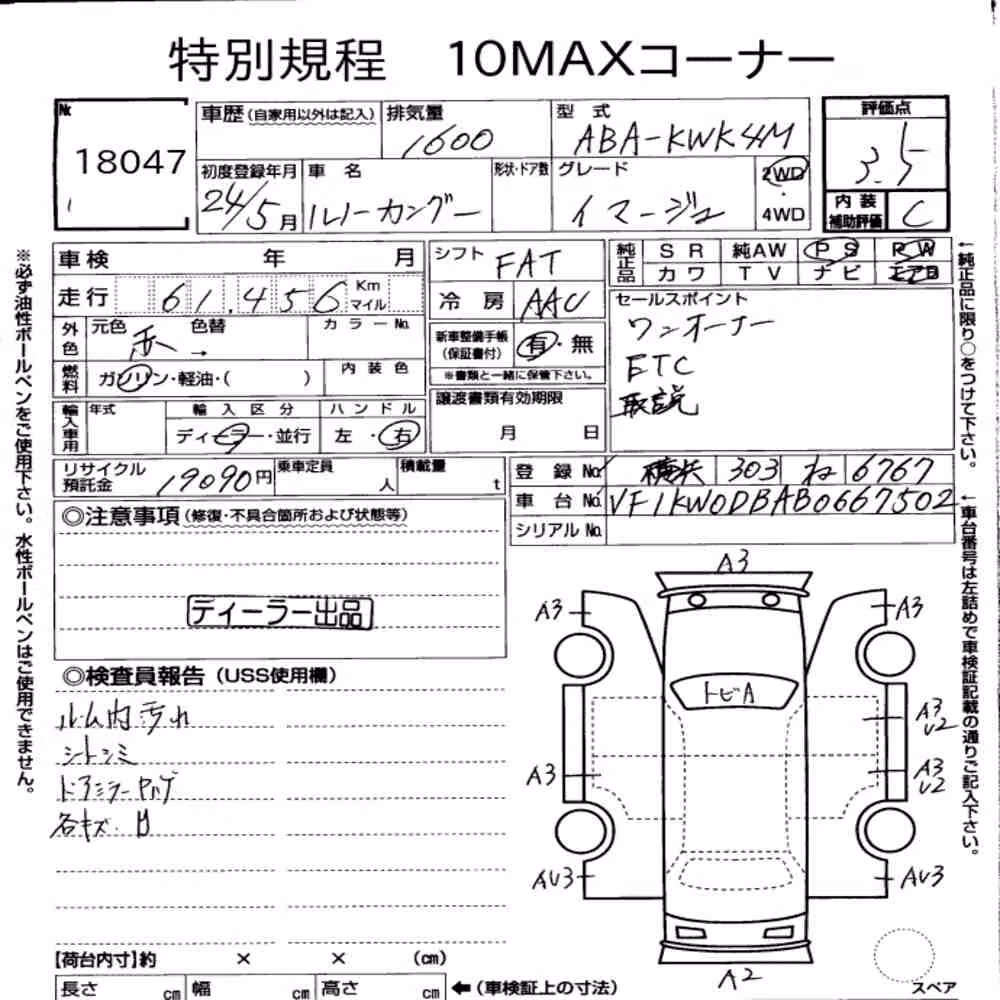 特別規程 10MAXコーナー
№ 18047
車歴(自家用以外は記入) 排気量 1600 型式 ABA-KWK4M 評価点 3.5
初度登録年月 24/5月 車名 ルノーカングー 形状・ドア数 グレード イマージュ 2WD・4WD 内装補助評価 C
車検 年 月
走行 61,456 Km マイル
外色 元色 赤 → 色替 カラーNo.
燃料 ガソリン・軽油・( ) 内装色
輸入車用 年式 輸入区分 ディーラー・並行 ハンドル 左・右
シフト FAT
冷房 AAC
新車整備手帳(保証書付) 有・無
※書類と一緒に保管下さい。
譲渡書類有効期限 月 日
純正品 SR 純AW PS PW
カワ TV ナビ エアB
セールスポイント
ワンオーナー
ETC
取説
リサイクル預託金 19090円 乗車定員 人 積載量 t
登録No. 横浜 303 ね 6767
車台No. VF1KW0DBAB0667502
シリアルNo.
◎注意事項(修復・不具合箇所および状態等)
ディーラー出品
◎検査員報告(USS使用欄)
ルーム内汚れ
シートシミ
ドアミラー
各キズ・凹
A3
A3 A3
トビA
A3 U2
A3 A3 U2
AU3 AU3
A2
スペア
【荷台内寸】約 × × (cm)
長さ cm 幅 cm 高さ cm ←(車検証上の寸法)
※必ず油性ボールペンをご使用下さい。水性ボールペンはご使用できません。
←純正品に限り○をつけて下さい。
←車台番号は左詰めで車検証記載の通りご記入下さい。